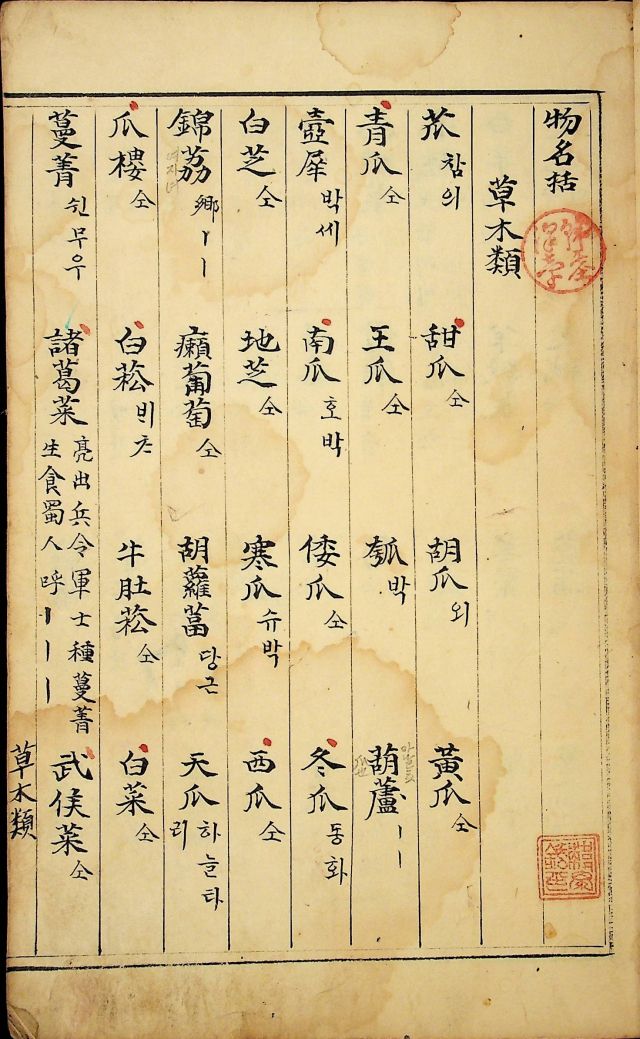 物名括
草木類
苽 참의 甜瓜 仝 胡瓜 외 黃瓜 仝
青瓜 仝 王瓜 仝 瓠 박 葫蘆 ㅣㅣ
壺犀 박세 南瓜 호박 倭瓜 仝 冬瓜 동화
白芝 仝 地芝 仝 寒瓜 슈박 西瓜 仝
錦荔 鄕ㅣㅣ 癩葡萄 仝 胡蘿葍 당근 天瓜 하눌타리
瓜樓 仝 白菘 ᄇᆡᄎᆞ 牛肚菘 仝 白菜 仝
蔓菁 쉰무우 諸葛菜 亮出兵令軍士種蔓菁生食蜀人呼ㅣㅣㅣ 武侯菜 仝
草木類